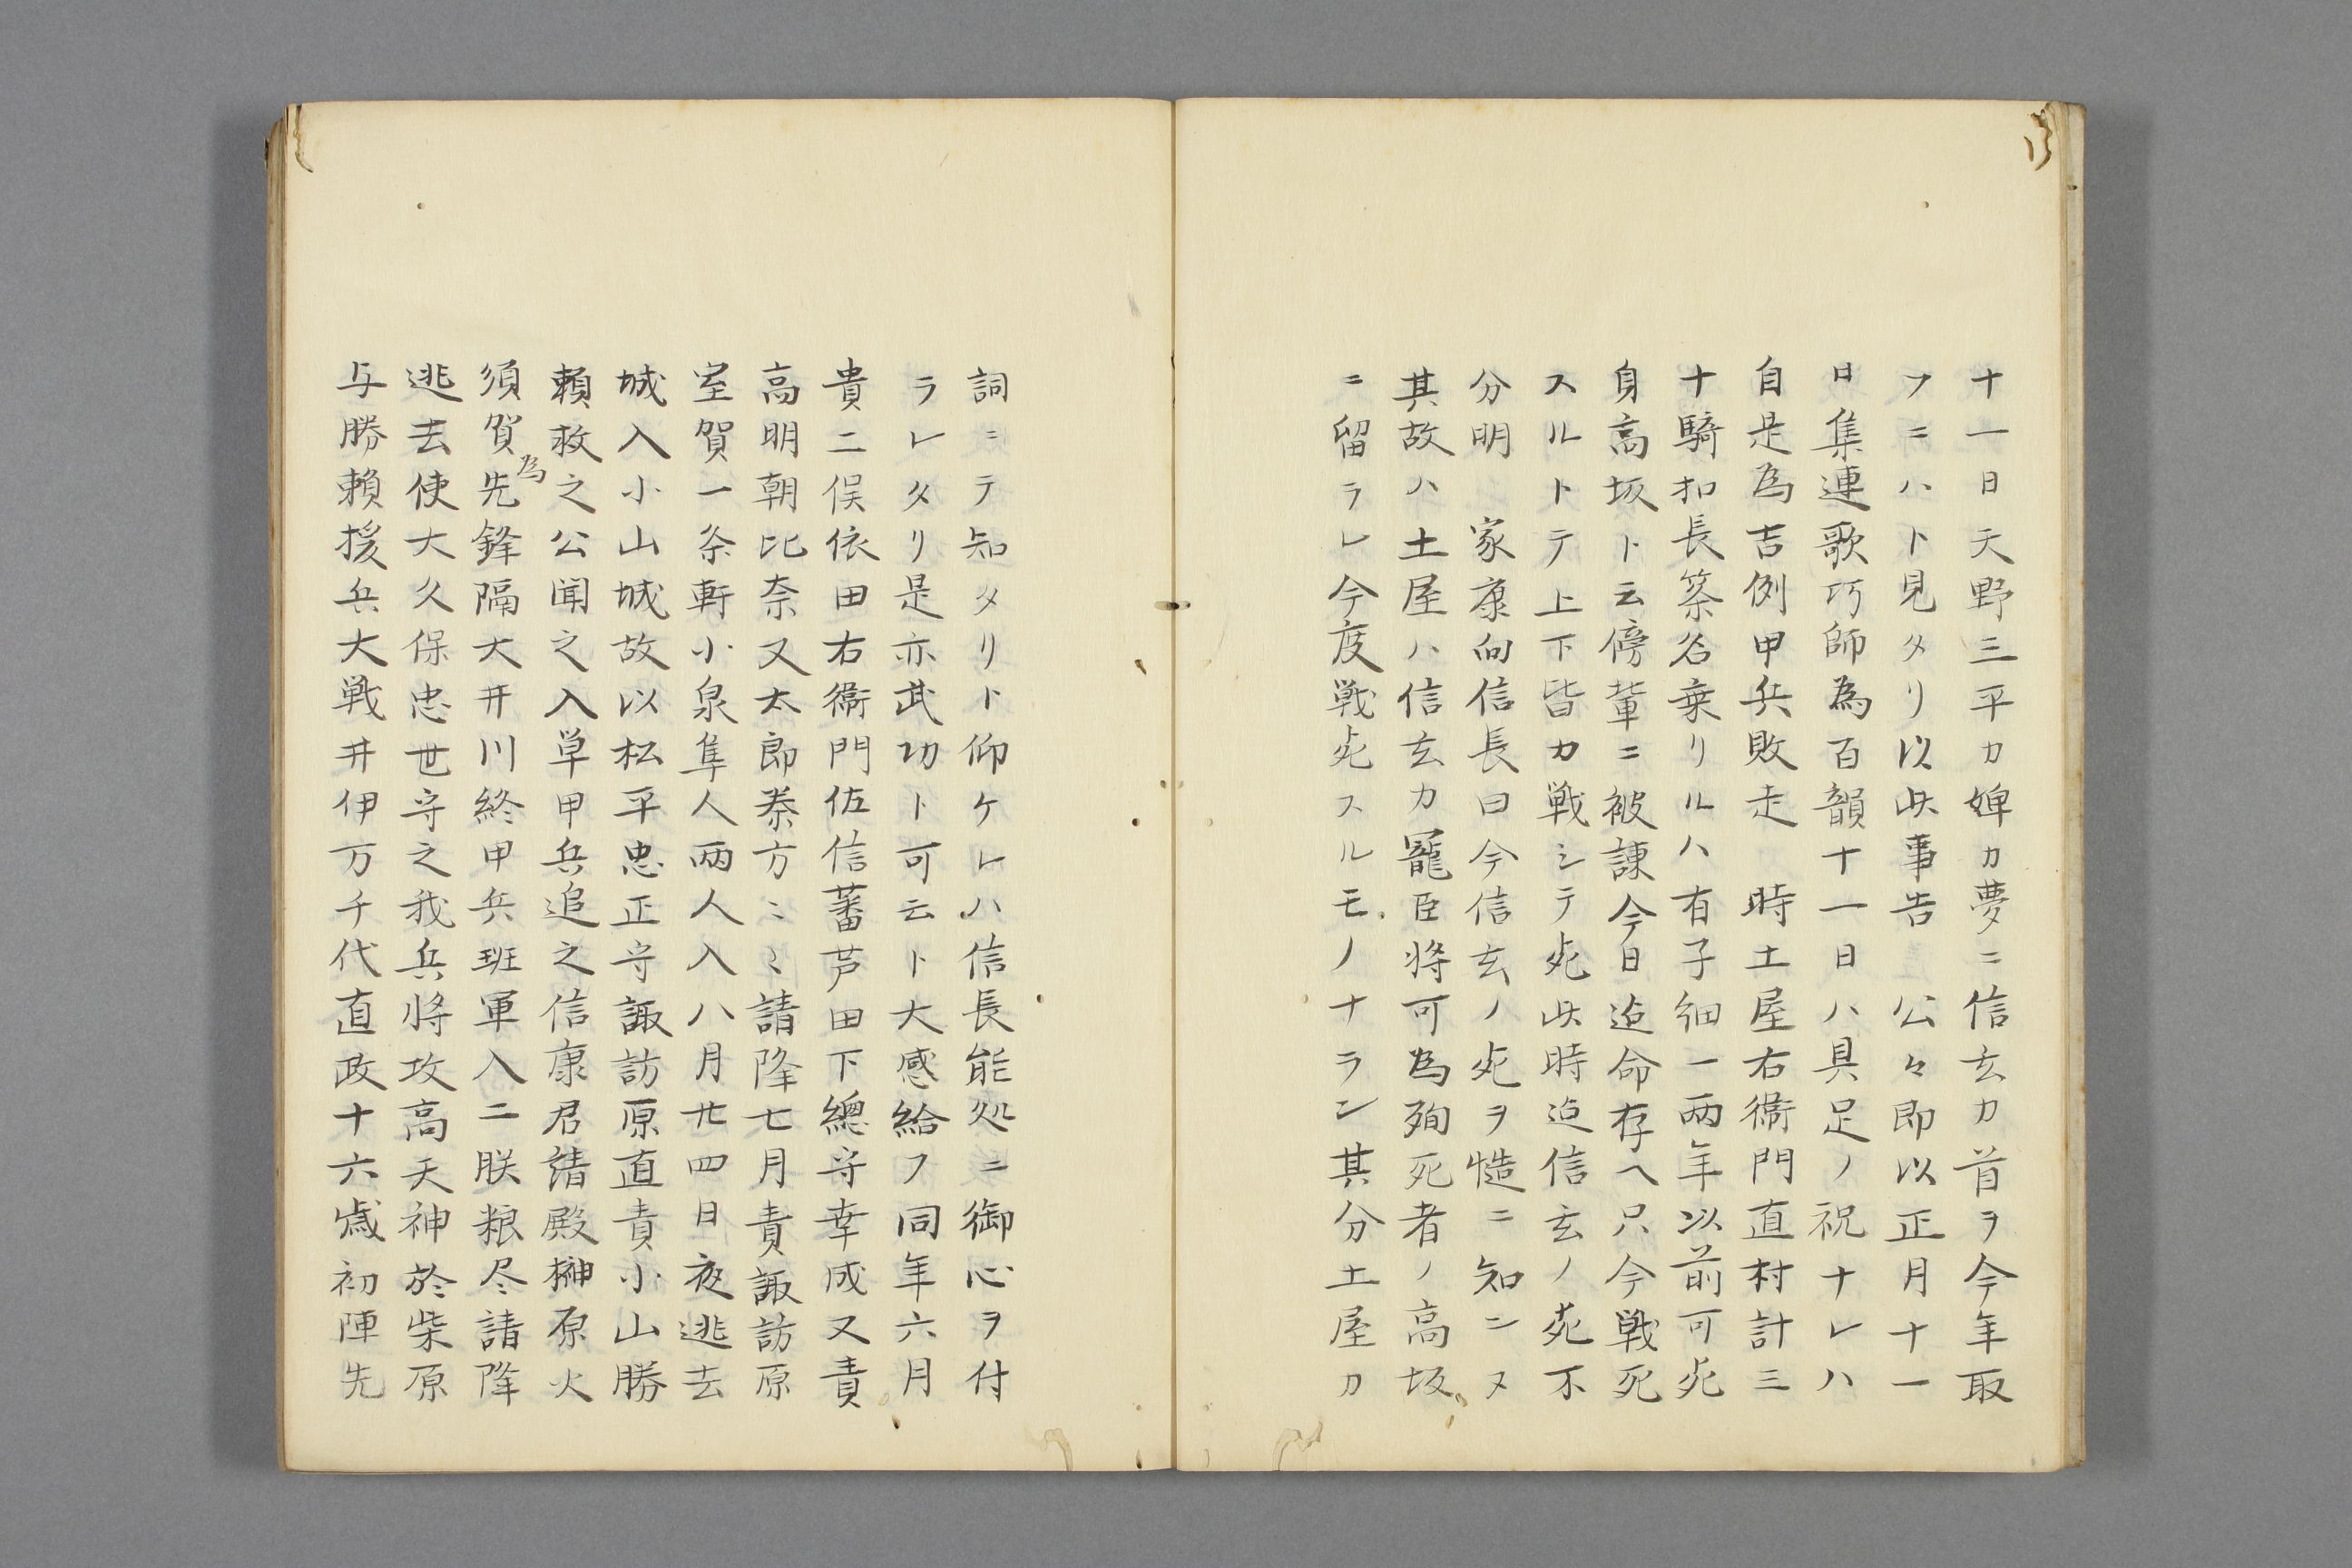 十一日天野三平カ婢カ夢ニ信玄カ首ヲ今年取
フニハト見タリ以此事告　公々即以正月十一
日集連歌巧師為百韻十一日ハ具足ノ祝ナレハ
自是為吉例甲兵敗走　時土屋右衛門直村計三
十騎扣長篠名乗リルハ有子細一両年以前可死
身高坂ト云傍輩ニ被諌今日迠命存ヘ只今戦死
スルトテ上下皆カ戦シテ死此時迠信玄ノ死不
分明　家康向信長曰今信玄ノ死ヲ慥ニ知ンヌ
其故ハ土屋ハ信玄カ寵臣将可為殉死者ノ高坂
ニ留ラレ今度戦死スルモノナラン其分土屋カ
詞ニテ知タリト仰ケレハ信長能処ニ御心ヲ付
ラレタリ是亦武功ト可云ト大感給フ同年六月
貴二俣依田右衛門佐信蕃芦田下總守幸成又責
高明朝比奈又太郎泰方ニミ請降七月責諏訪原
室賀一条軒小泉隼人両人入八月廿四日夜逃去
城入小山城故以松平忠正守諏訪原直責小山勝
頼救之公聞之入単甲兵追之信康君請殿榊原火
須賀為先鋒隔大井川終甲兵班軍入二朕粮尽請降
逃去使大久保忠世守之我兵将攻高天神於柴原
与勝頼援兵大戦井伊万千代直政十六歳初陣先